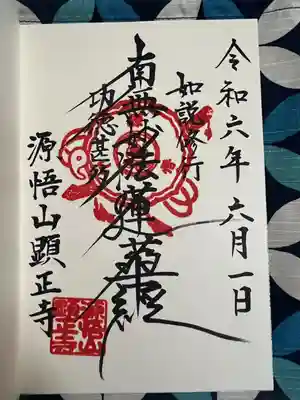 令和六年六月一日
如説修行
南無妙法蓮華経
功徳甚多
源悟山顕正寺